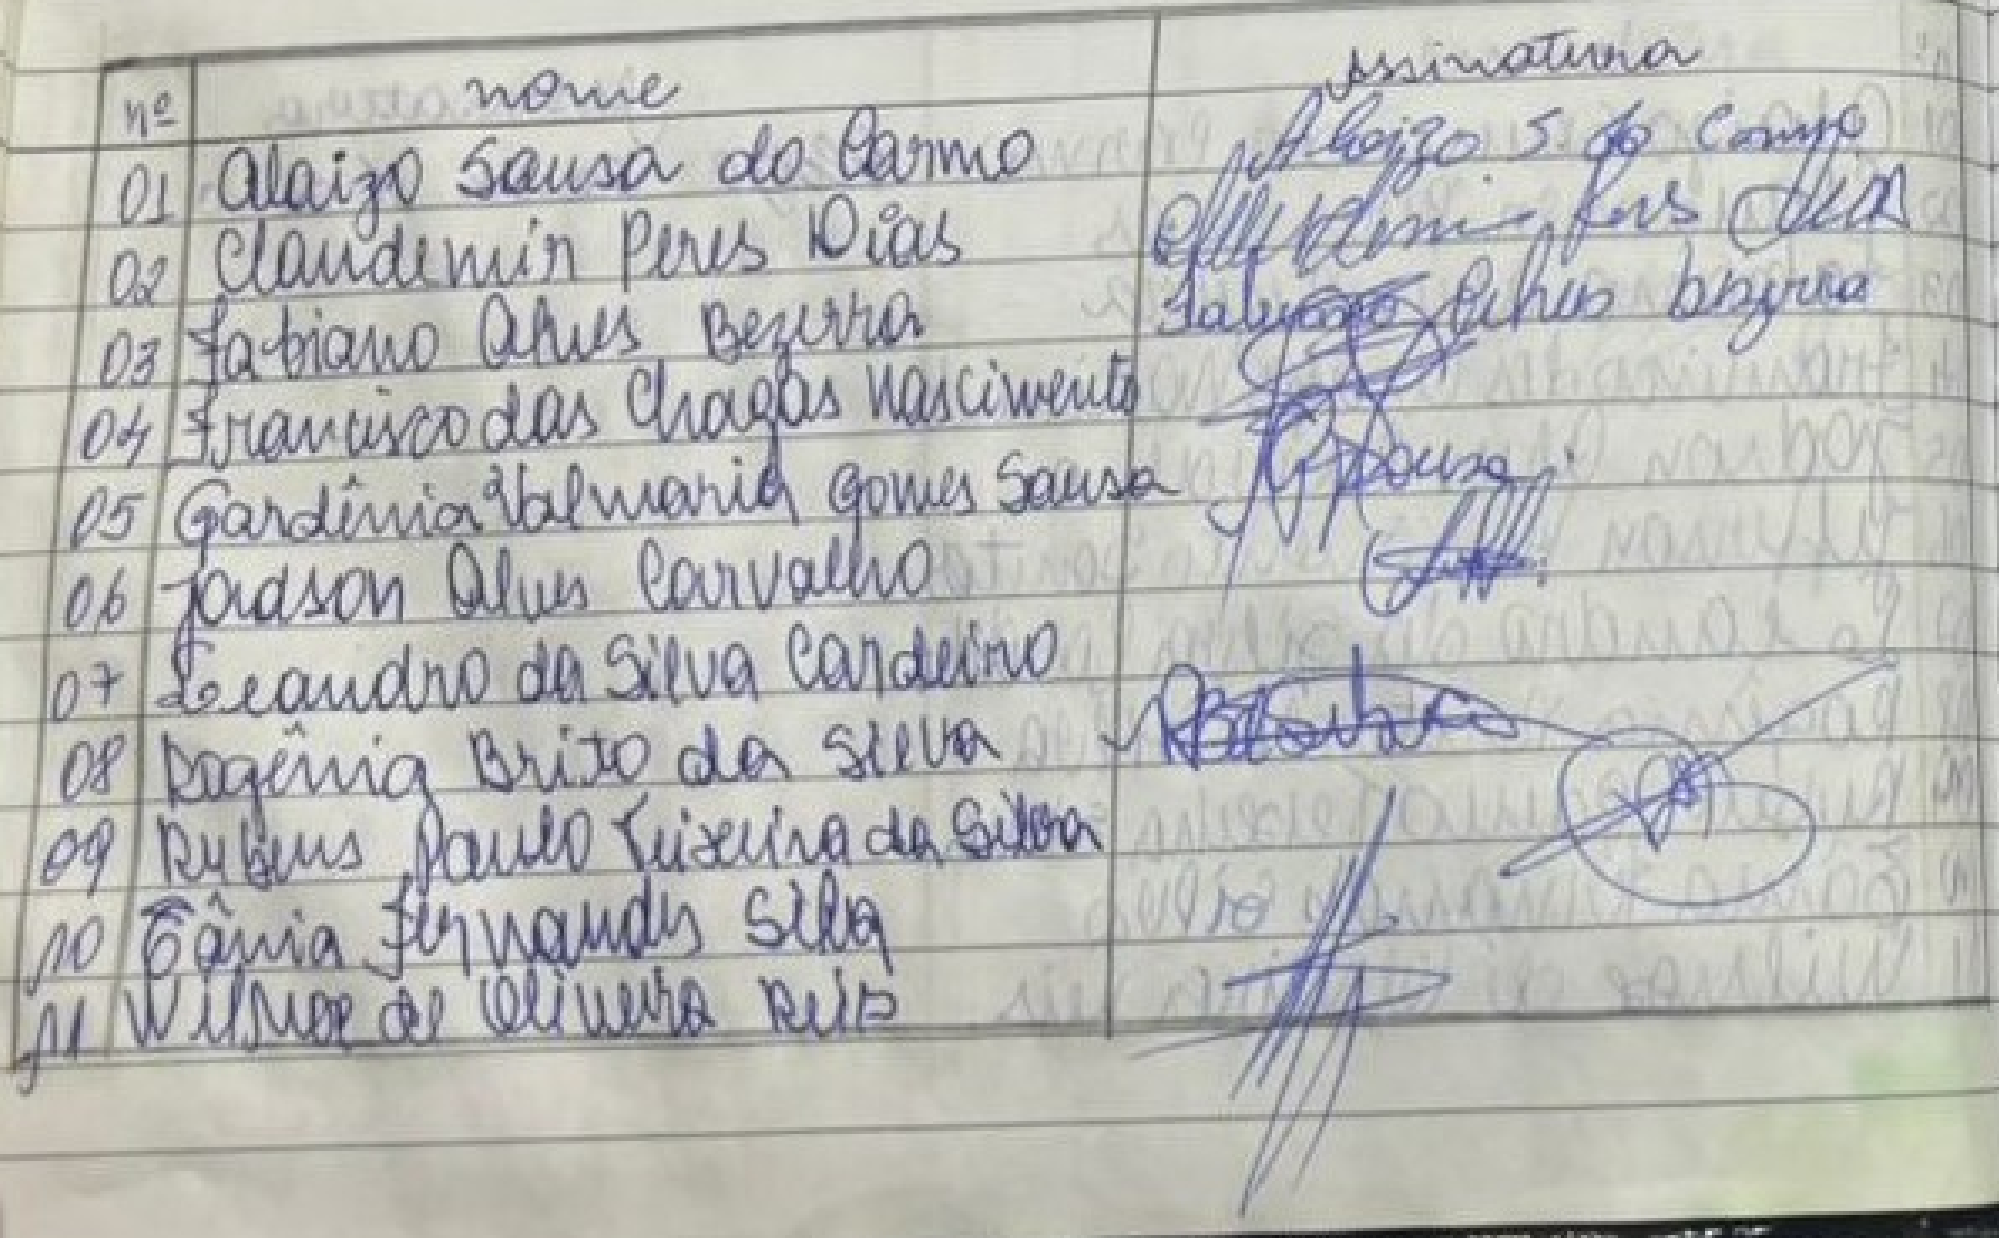 nº nome Assinatura
01 Alaizo Sousa do Carmo Alaizo S. do Carmo
02 Claudemir Peres Dias Peres Dias
03 Fabiano Alves Bezerra Fabiano Alves bezerra
04 Francisco das Chagas Nascimento
05 Gardênia Valmaria Gomes Sousa Sousa
06 Jardson Alves Carvalho
07 Leandro da Silva Cardeiro
08 Rogênia Brito da Silva RBdaSilva
09 Rubens Paulo Teixeira da Silva
10 Tânia Fernandes Silva
11 de Oliveira Reis